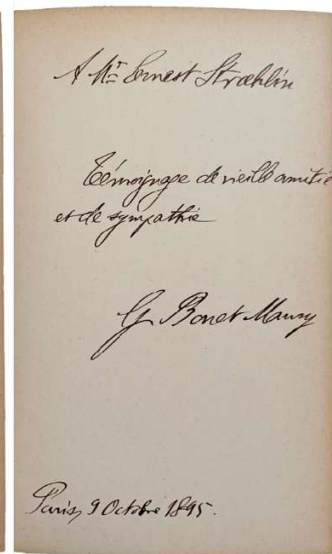 A Mr Ernest Stroehlin
Témoignage de vieille amitié
et de sympathie
G Bonet Maury
Paris, 9 Octobre 1895.